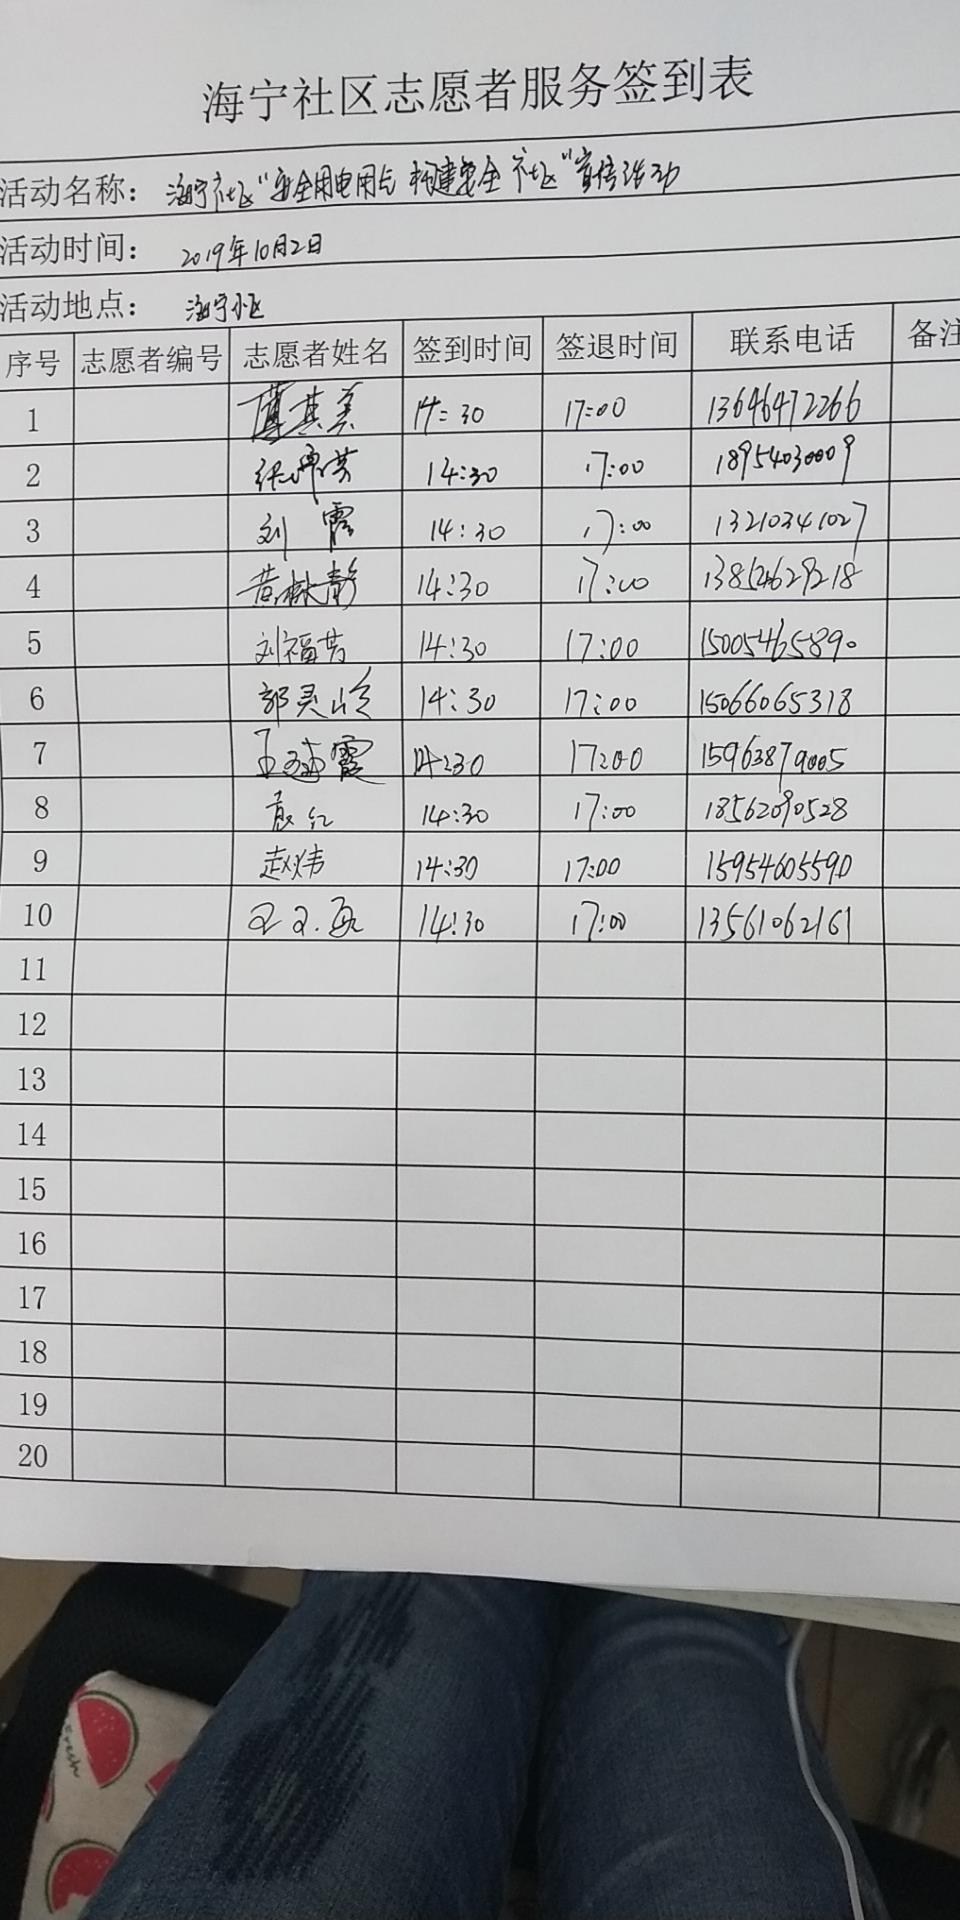 海宁社区志愿者服务签到表
活动名称： 海宁社区"安全用电用气 构建安全社区"宣传活动
活动时间： 2019年10月2日
活动地点： 海宁小区
序号 志愿者编号 志愿者姓名 签到时间 签退时间 联系电话 备注
1 14:30 17:00 13646472266
2 14:30 17:00 18954030009
3 刘霞 14:30 17:00 13210341027
4 黄林静 14:30 17:00
5 刘福芳 14:30 17:00 15005465890
6 郭灵崂 14:30 17:00 15066065318
7 霞 14:30 17:00 15963879005
8 14:30 17:00 18562090528
9 赵炜 14:30 17:00 15954605590
10 14:30 17:00 13561062161
11
12
13
14
15
16
17
18
19
20
Fresh